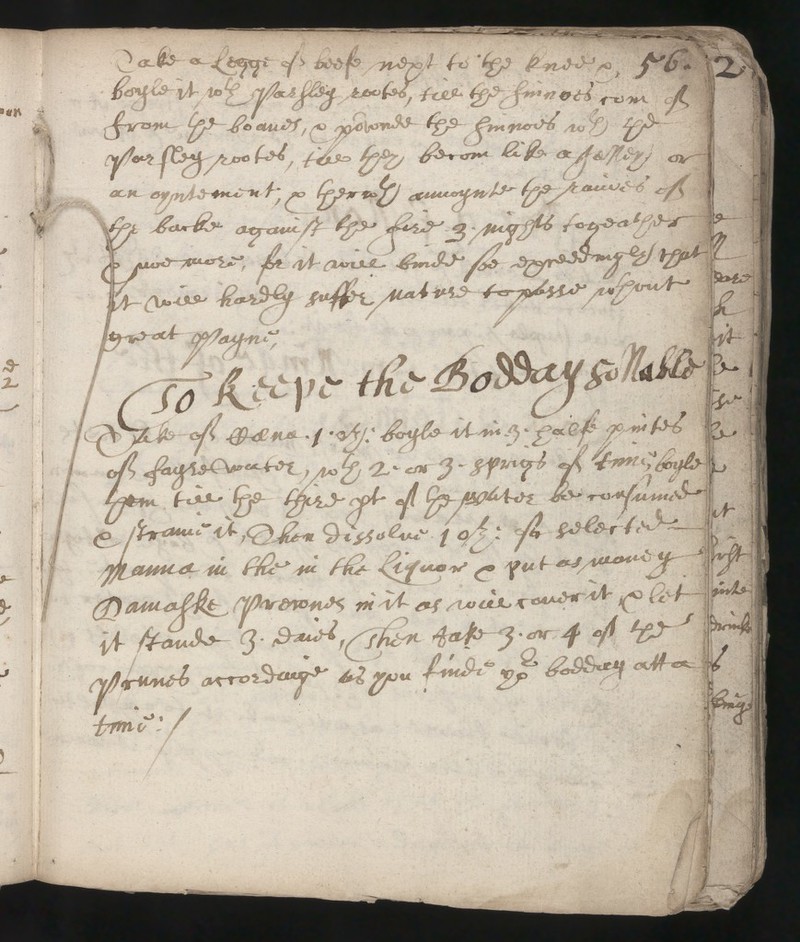 Take a Legge of beefe next to the knee & 56.
boyle it wth Parsley rootes, till the sinnoes com of
from the boanes, & powonde the sinnoes wth the
Parsley rootes, till they becom like a Jelley or
an oyntement, & therwth annoynte the raines of
the backe against the fire 3. nights togeather
& noe more, for it will binde soe exceedingly that
it will hardly suffer nature to passe wthout
great Payne,
To Keepe the Bodday sollable
Take of Sena .1. oz: boyle it in 3. halfe pintes
of fayre water, wth 2. or 3. sprigs of time, boyle
them till the thire pt of the water be consumed
& straine it, Then dissolve 1 oz: of selected
Manna in the in the Liquor & put as maney
Damaske Prewnes in it as will cover it, & let
it stande 3. daies, Then take 3. or 4 of the
Prunes accordinge as you finde yor bodday att a
time:/
2